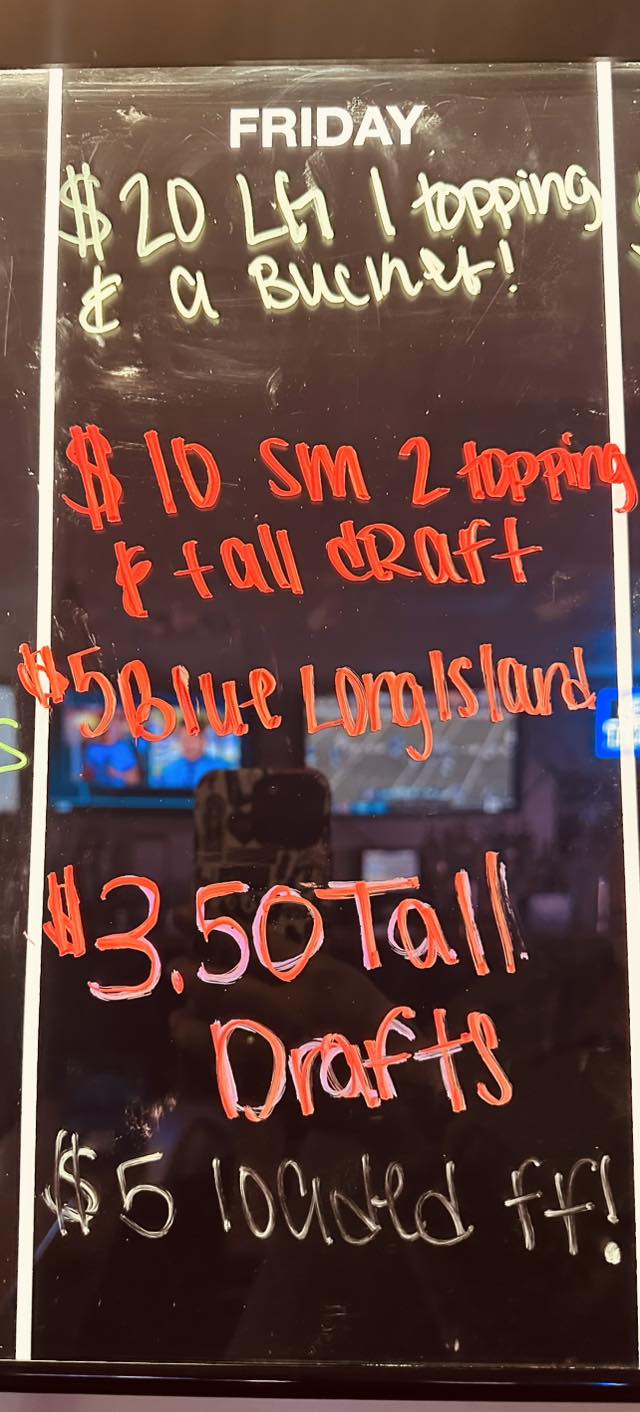 FRIDAY
$20 LG 1 topping
& a Bucket!
$10 sm 2 topping
& tall draft
$5 Blue Long Island
$3.50 Tall
Drafts
$5 loaded ff!